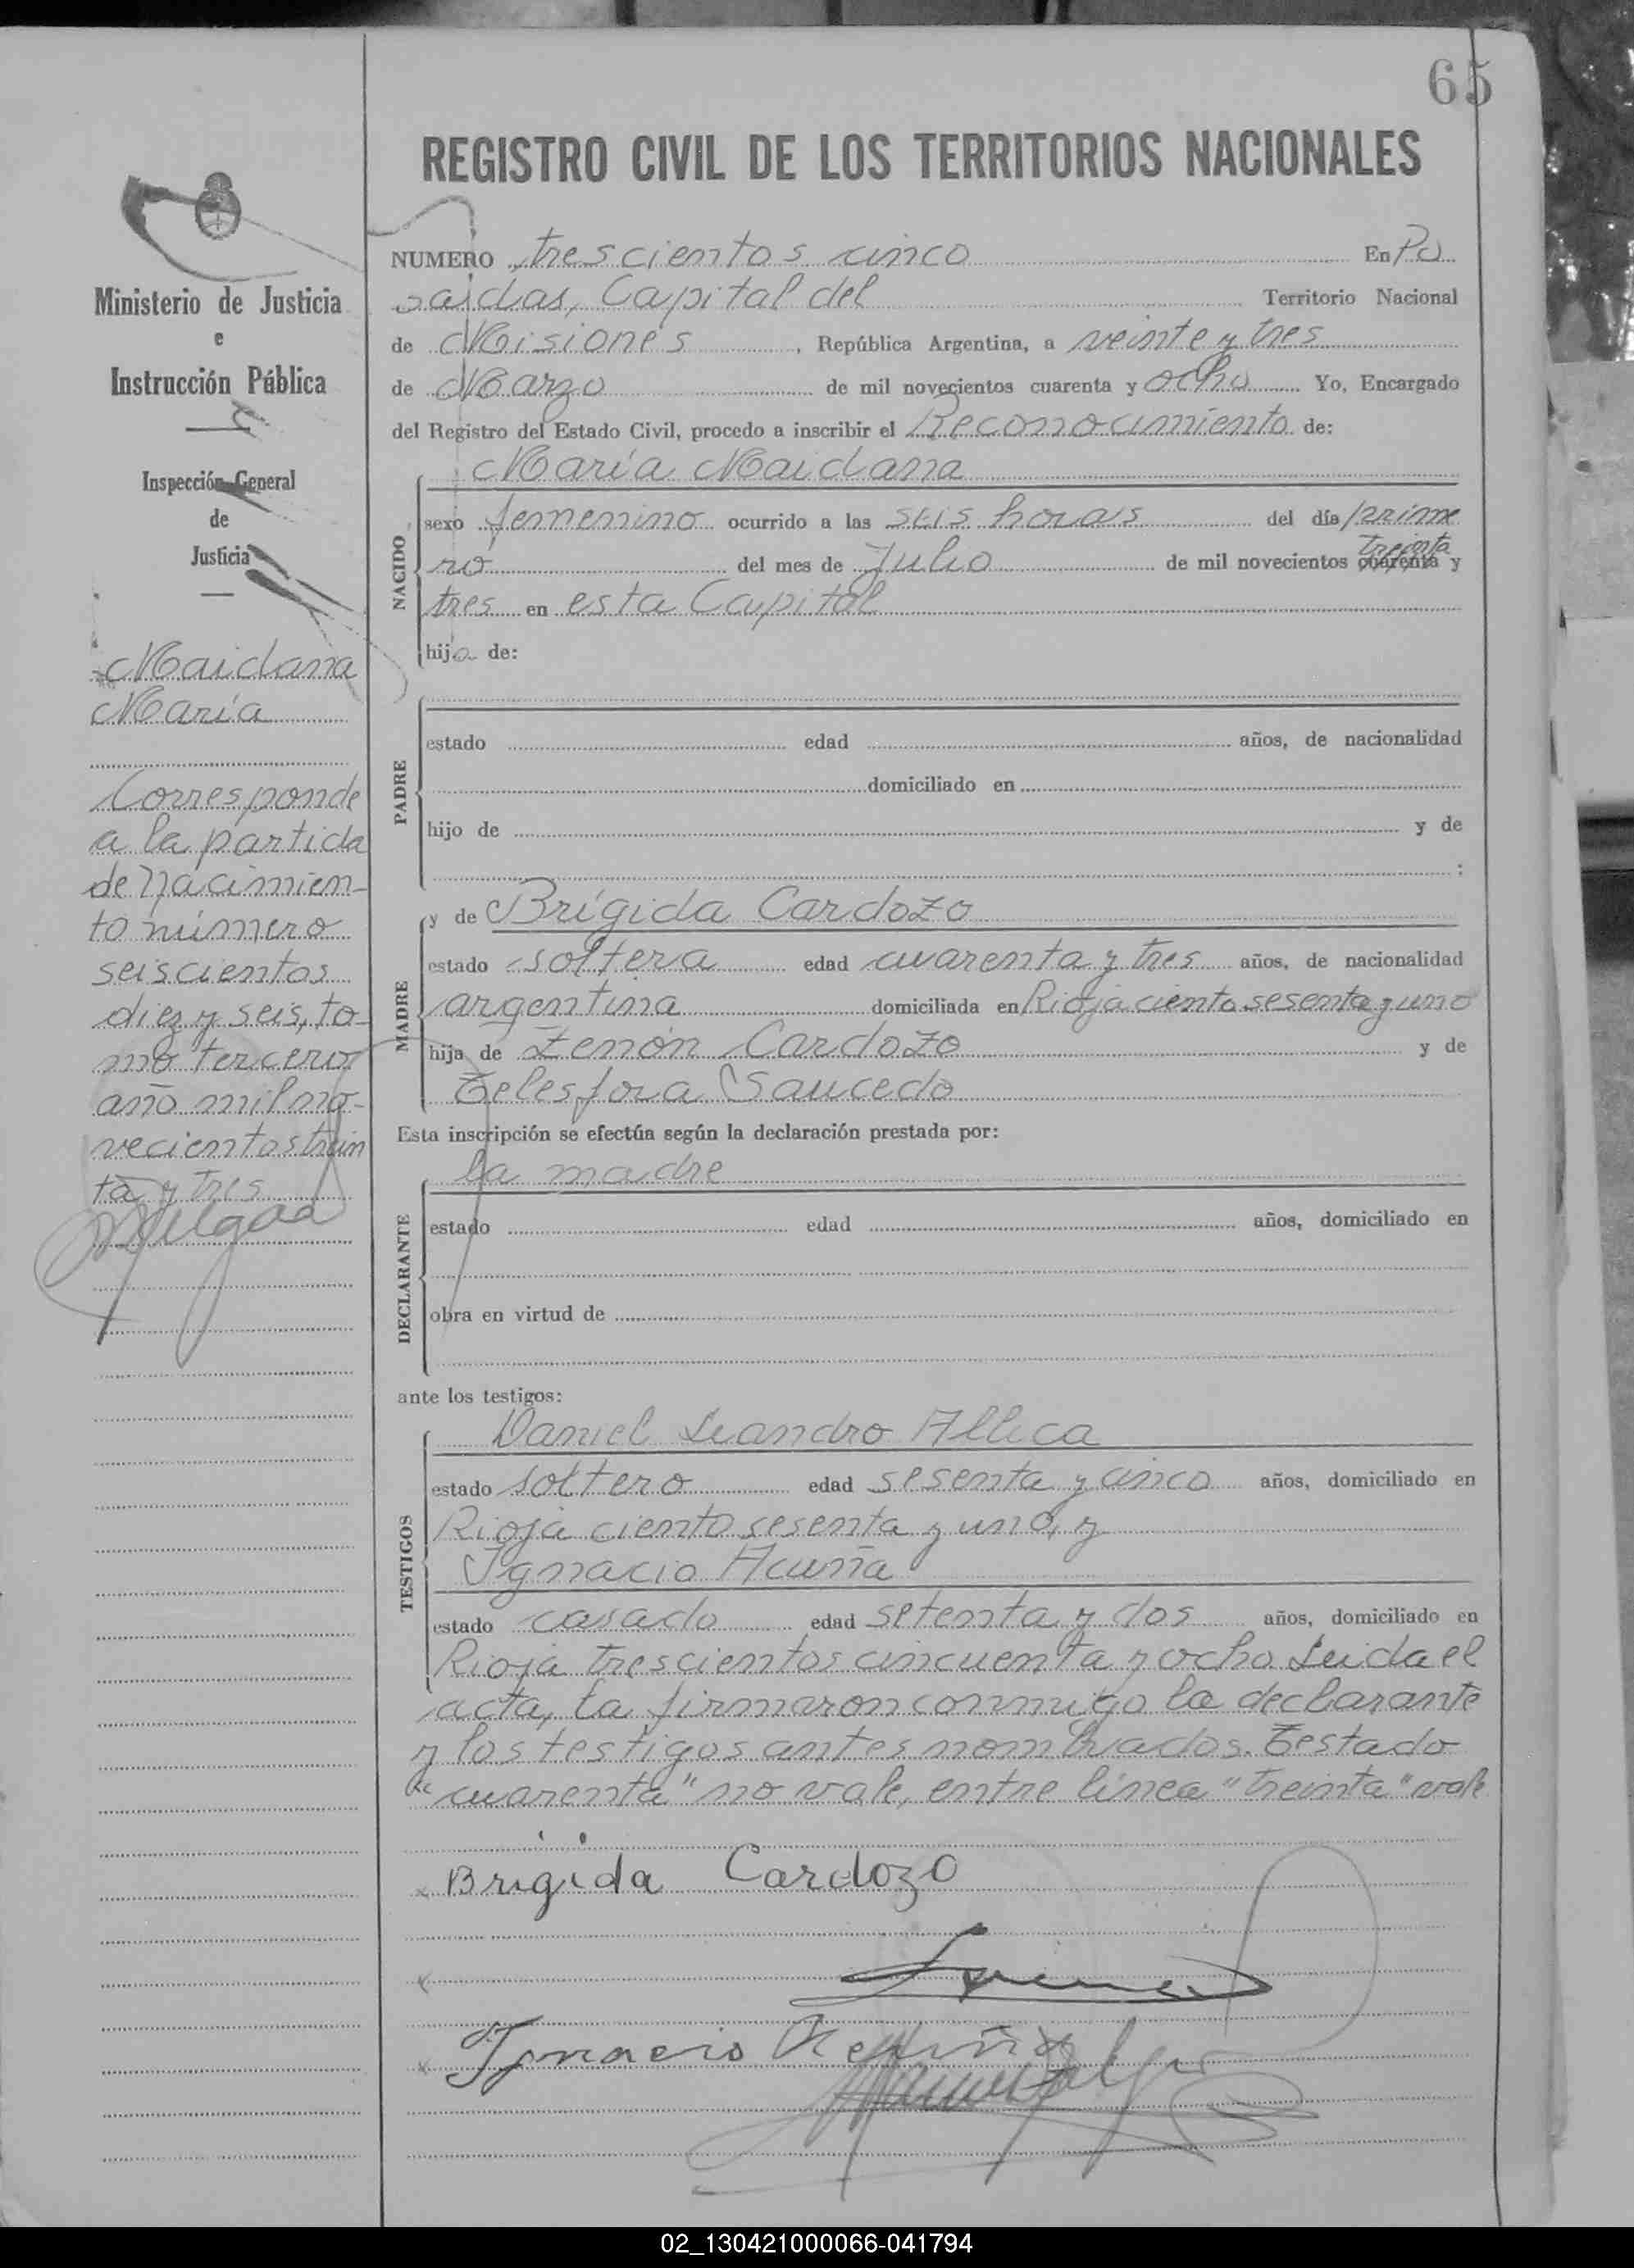 65
REGISTRO CIVIL DE LOS TERRITORIOS NACIONALES
Ministerio de Justicia
e
Instrucción Pública
Inspección General
de
Justicia
Maidana
María
Corresponde
a la partida
de nacimien-
to número
seiscientos
diez y seis, to-
mo tercero
año mil no-
vecientos trein
ta y tres
NUMERO trescientos cinco En Po
sadas, Capital del Territorio Nacional
de Misiones, República Argentina, a veinte y tres
de Marzo de mil novecientos cuarenta y ocho Yo, Encargado
del Registro del Estado Civil, procedo a inscribir el Reconocimiento de:
María Maidana
NACIDO
sexo femenino ocurrido a las seis horas del día prime
treinta
ro del mes de Julio de mil novecientos cuarenta y
tres en esta Capital
hija de:
PADRE
estado edad años, de nacionalidad
domiciliado en
hijo de y de
;
MADRE
y de Brígida Cardozo
estado soltera edad cuarenta y tres años, de nacionalidad
argentina domiciliada en Rioja ciento sesenta y uno
hija de Zenón Cardozo y de
Telesfora Saucedo
Esta inscripción se efectúa según la declaración prestada por:
la madre
DECLARANTE
estado edad años, domiciliado en
obra en virtud de
ante los testigos:
TESTIGOS
Daniel Leandro Allica
estado soltero edad sesenta y cinco años, domiciliado en
Rioja ciento sesenta y uno, y
Ignacio Acuña
estado casado edad setenta y dos años, domiciliado en
Rioja trescientos cincuenta y ocho Leida el
acta, la firmaron conmigo la declarante
y los testigos antes nombrados. Testado
"cuarenta" no vale, entre línea "treinta" vale
Brigida Cardozo
Ignacio Acuña
02_130421000066-041794